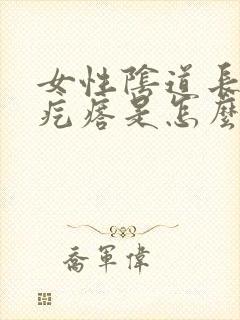 女性陰道長
疙瘩是怎麼
喬軍偉